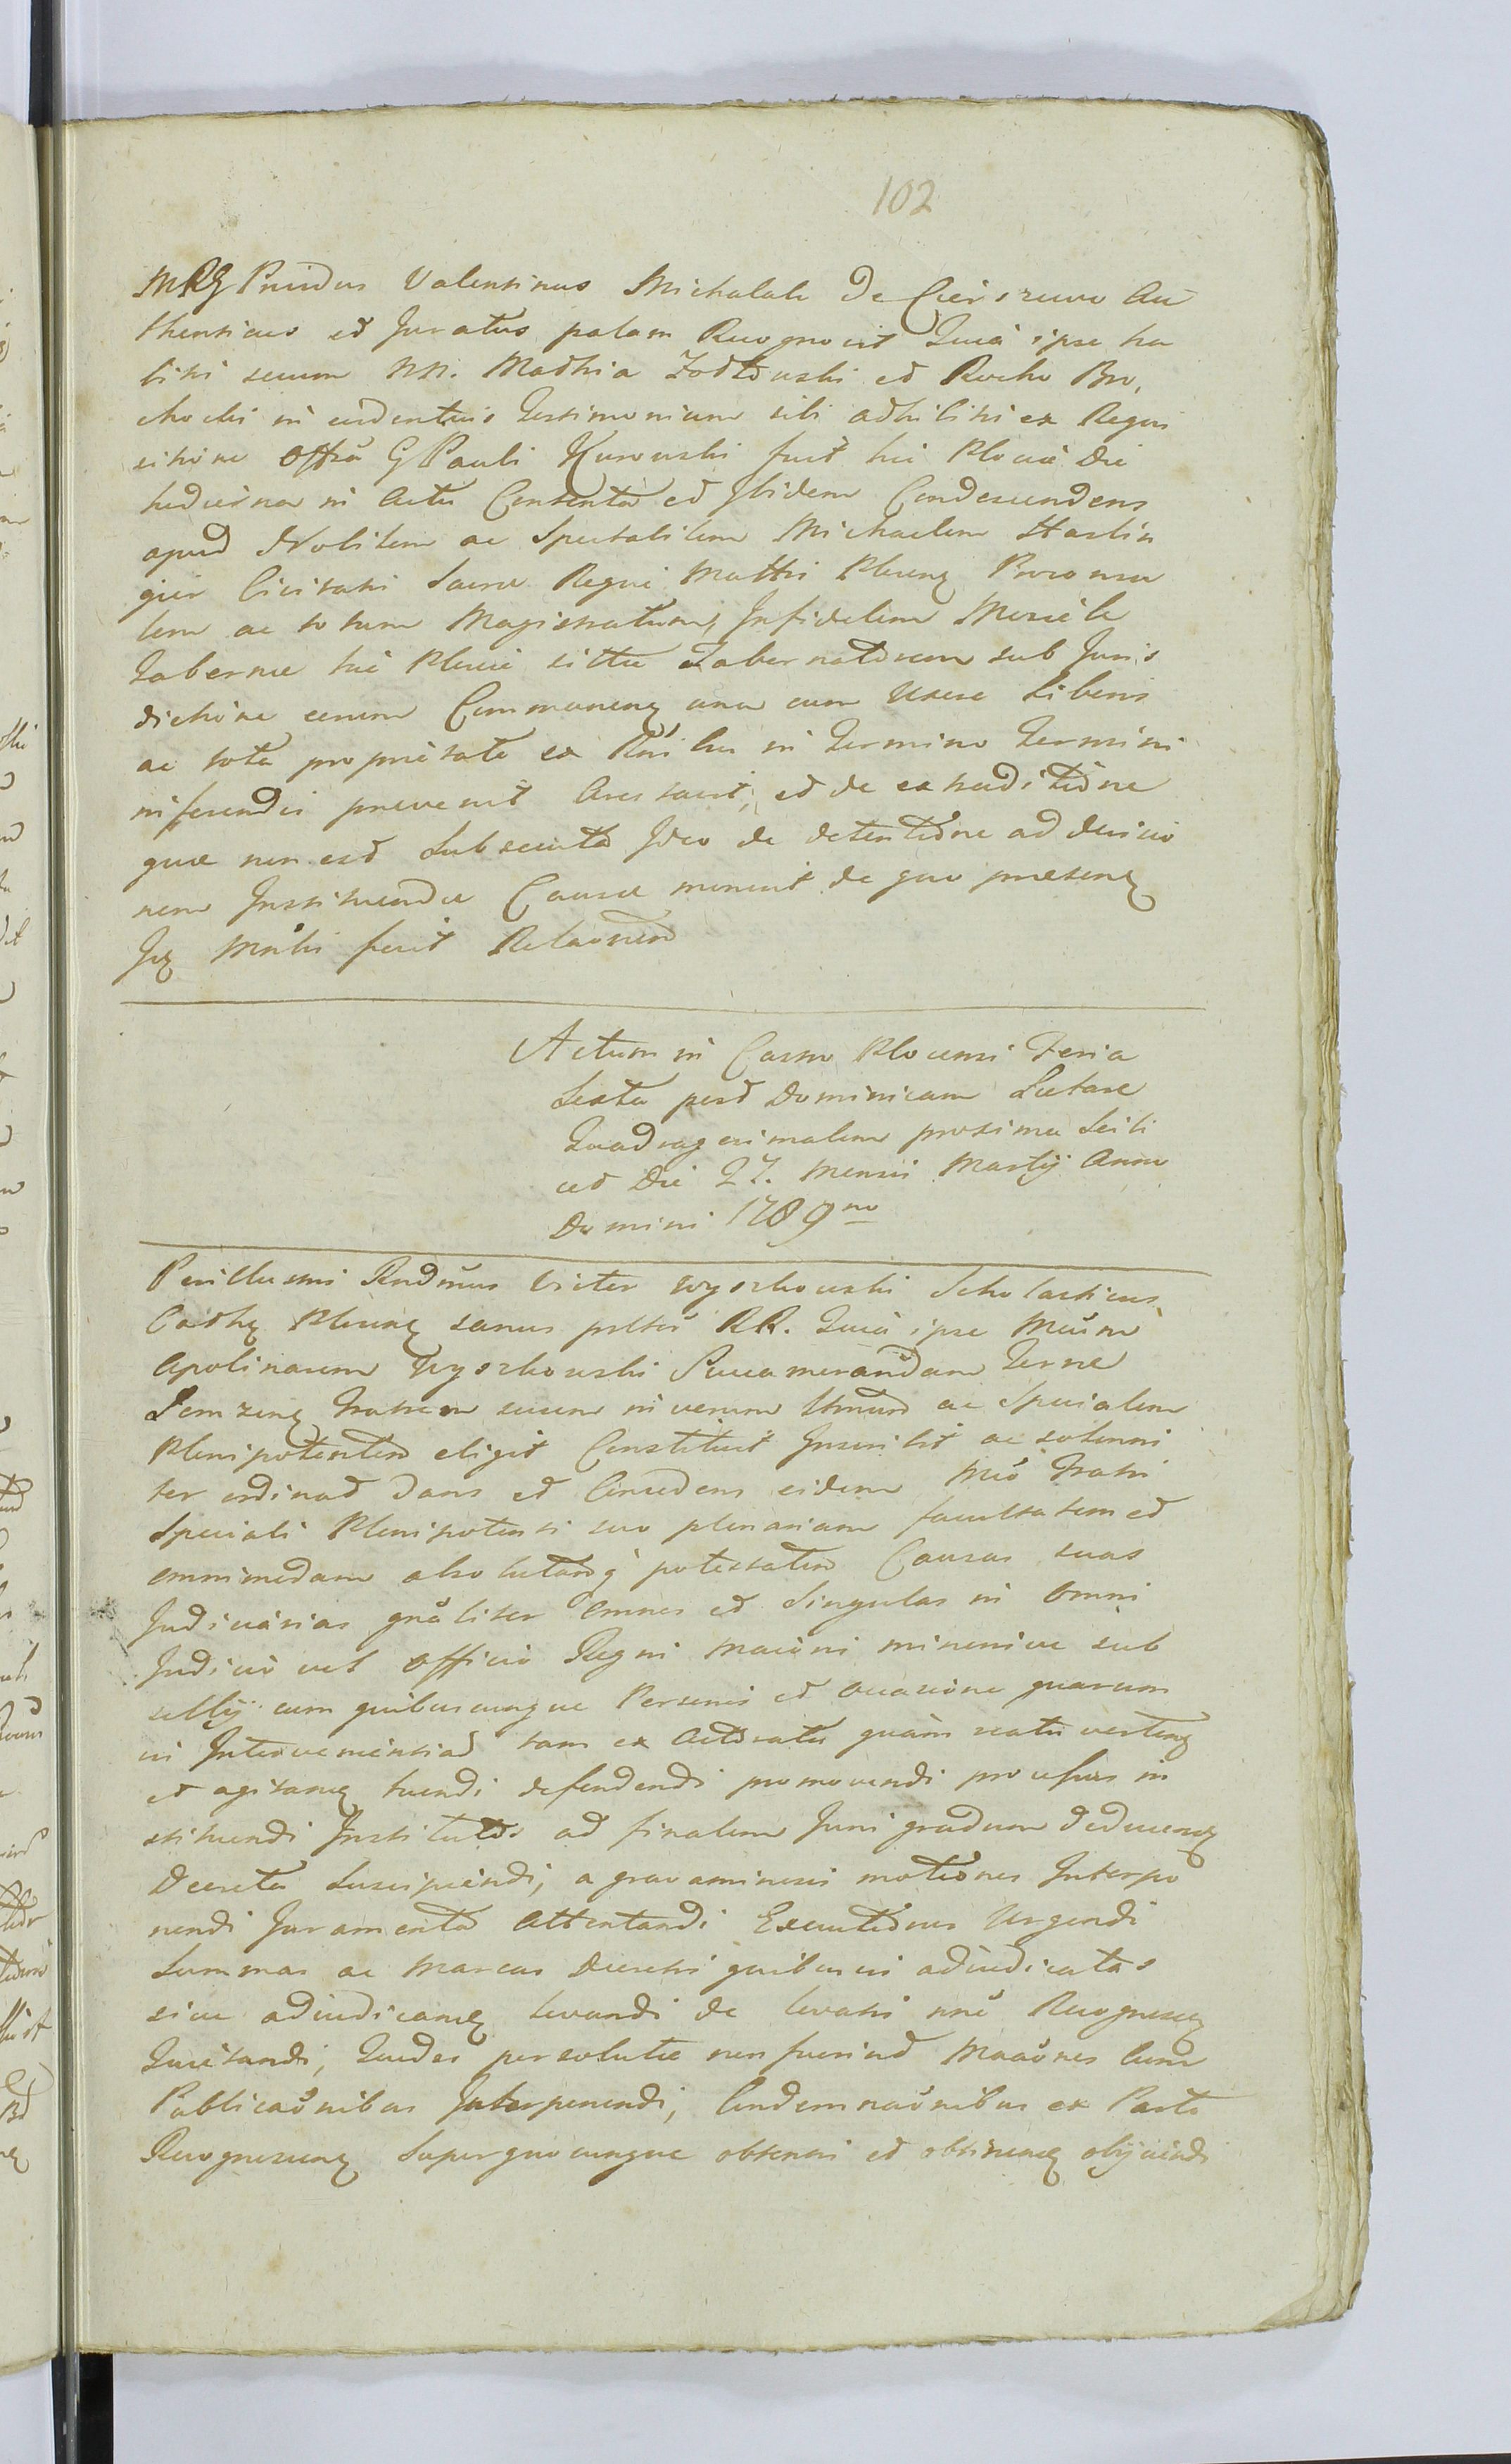 102
MRG Puidus Valentinus Michalak de Cierszewo Au
thenticus et Juratus palam Recognovit Quia ipse ha
bitis secum NN. Mathia Zołtowski et Rocho Bro,
chocki in evidentius Testimonium sibi adhibitis ex Requi
sitione Offsa G Pauli Kurowski fuit hic Plociæ Die
hodierna in Actu Contenta et Ibidem Condescendens
apud Nobilem ac Spectabilem Michaelem
gier Civitatis Sacræ Regiæ Mattis Plocen Proconsu
lem ac totum Magistratum, Infidelem
Tabernæ hic Plociæ sittæ Tabernatorem sub Juris
dictione eorum Commanen una cum Uxore Liberis
ac tota proprietate ex in Termino Termini
inferendis prævenit Arestavit, et de extraditione
quæ non est Subsecuta Ideo de detentione ad decisio
nem Instituendæ Causæ monuit de quo præsens
suam fecit Relaonem
Actum in Castro Plocensi Feria
Sexta post Dominicam Lætare
Quadragesimalem proxima Scili
cet Die 27. Mensis Martij Anno
Domini 1789no
Perillustris Rndmus Victor Wyszkowski Scholasticus
Cathis Plocen sanus RR. Quia ipse Mcum
Apolinarem Wyszkowski Succamerandam Terræ
Lomzen Fratrem suum in verum ac Specialem
Plenipotentem eligit Constituit Inscribit ac solenni
ter ordinat Dans et Concedens eidem Mco Fratri
Speciali Plenipotenti suo plenariam facultatem et
omnimodam absolutamq potestatem Causas suas
Judiciarias gnaliter omnes et Singulas in omni
Judicio vel Officio Regni maioris minorisve sub
sellij cum quibuscunque Personis et occasione quarum
vis Intervenientiad tam ex Actoratu quam reatu verten
et agitan tuendi defendendi promovendi processus in
stituendi Institutos ad finalem Juris gradum deducen
Decreta Suscipiendi, a gravaminosis motiones Interpo
nendi Juramenta Attentandi Executiones Urgendi
Summas ac Marcas Decretis quibusvis adiudicatas
sive adiudican levandi de levatis nne Recognoscen
Quietandi, Quodsi persolutæ non fuerint Maaones Cum
Publicaonibus Interponendi, Condemnaonibus ex Parte
Recognoscen Super quocunque obtentis et obtinen obijciendi